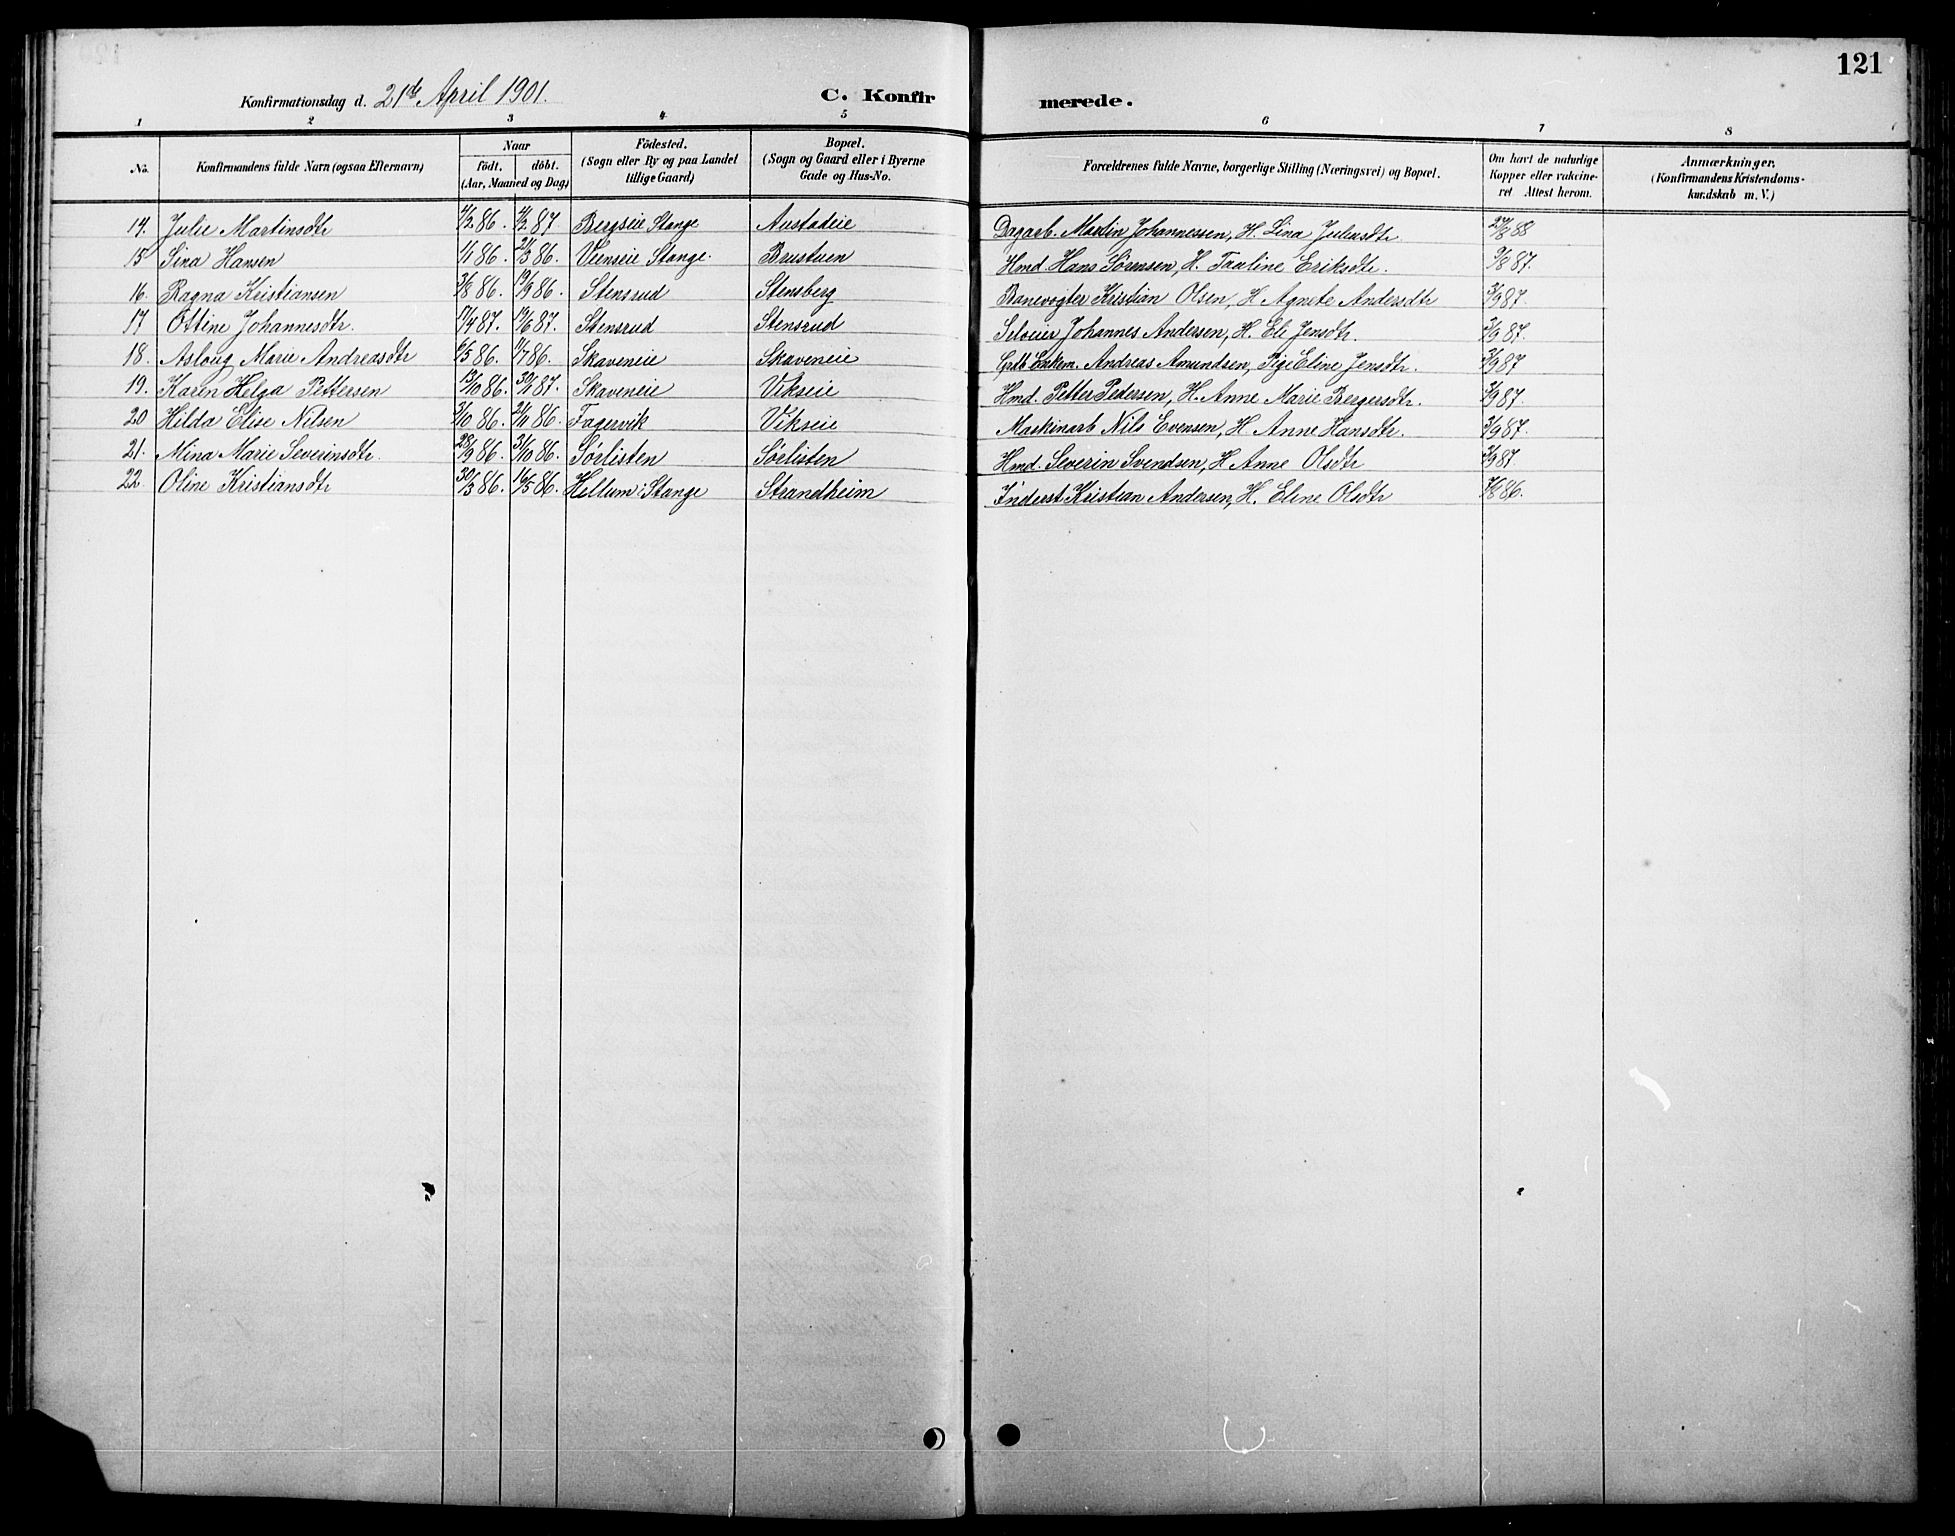 121
Konfirmationsdag d. 21de April 1901.
C. Konfir merede.
1 2 3 4 5 6 7 8
No. Konfirmandens fulde Navn (ogsaa Efternavn) Naar født. døbt. (Aar, Maaned og Dag) Födested. (Sogn eller By og paa Landet tillige Gaard) Bopæl. (Sogn og Gaard eller i Byerne Gade og Hus-No. Forældrenes fulde Navne, borgerlige Stilling (Næringsvei) og Bopæl. Om havt de naturlige Kopper eller vakcineret Attest herom. Anmærkninger. (Konfirmandens Kristendomskundskab m. V.)
14. Julie Martinsdtr 7/2 86. 4/2 87 Bergseie Stange Austadeie Dagarb. Martin Johannessen, H. Lina Juliusdtr 27/8 88
15 Sina Hansen 1/1 86. 21/3 86. Veenseie Stange. Brustuen Hmd. Hans Sørensen, H. Pauline Eriksdtr. 9/8 87.
16. Ragna Kristiansen 3/8 86. 19/9 86. Stensrud Stensberg Banevogter Kristian Olsen, H. Agnete Andersdtr 3/9 87.
17 Ottine Johannesdtr. 17/4 87. 19/6 87. Stensrud Stensrud Selveier Johannes Andersen, H. Eli Jensdtr. 3/9 87.
18. Aslaug Marie Andreasdtr 6/5 86. 11/7 86. Skaveneie Skaveneie Andreas Amundsen, Pige Eline Jensdtr. 3/9 87
19. Karen Helga Pettersen 13/10 86. 30/1 87. Skaveneie Vikseie Hmd. Petter Pedersen, H. Anne Marie Bergersdtr. 3/9 87.
20 Hilda Elise Nilsen 3/10 86. 21/11 86. Fagervik Vikseie Maskinarb Nils Evensen, H. Anne Hansdtr. 3/9 87.
21. Mina Marie Severinsdtr. 28/9 86. 31/10 86. Sørlisten Sørlisten Hmd. Severin Svendsen, H. Anne Olsdtr 3/9 87.
22. Oline Kristiansdtr 30/3 86. 16/5 86. Hellum Stange Strandheim Inderst Kristian Andersen, H. Eline Olsdtr 7/8 86.